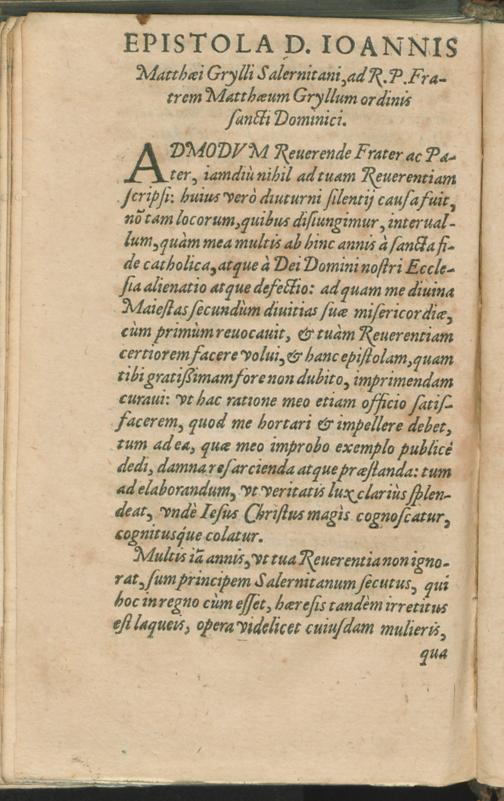 EPISTOLA D. IOANNIS
Matthæi Grylli Salernitani, ad R. P. Fra-
trem Matthæum Gryllum ordinis
sancti Dominici.
ADMODVM Reuerende Frater ac Pa-
ter, iamdiù nihil ad tuam Reuerentiam
scripsi: huius verò diuturni silentij causa fuit,
nõ tam locorum, quibus disiungimur, interual-
lum, quàm mea multis ab hinc annis à sancta fi-
de catholica, atque à Dei Domini nostri Eccle-
sia alienatio atque defectio: ad quam me diuina
Maiestas secundùm diuitias suæ misericordiæ,
cùm primùm reuocauit, & tuàm Reuerentiam
certiorem facere volui, & hanc epistolam, quam
tibi gratißimam fore non dubito, imprimendam
curaui: vt hac ratione meo etiam officio satis-
facerem, quod me hortari & impellere debet,
tum ad ea, quæ meo improbo exemplo publicè
dedi, damna resarcienda atque præstanda: tum
ad elaborandum, vt veritatis lux clariùs splen-
deat, vndè Iesus Christus magìs cognoscatur,
cognitusq́ue colatur.
Multis iã annis, vt tua Reuerentia non igno-
rat, sum principem Salernitanum secutus, qui
hoc in regno cùm esset, hæresis tandèm irretitus
est laqueis, opera videlicet cuiusdam mulieris,
qua